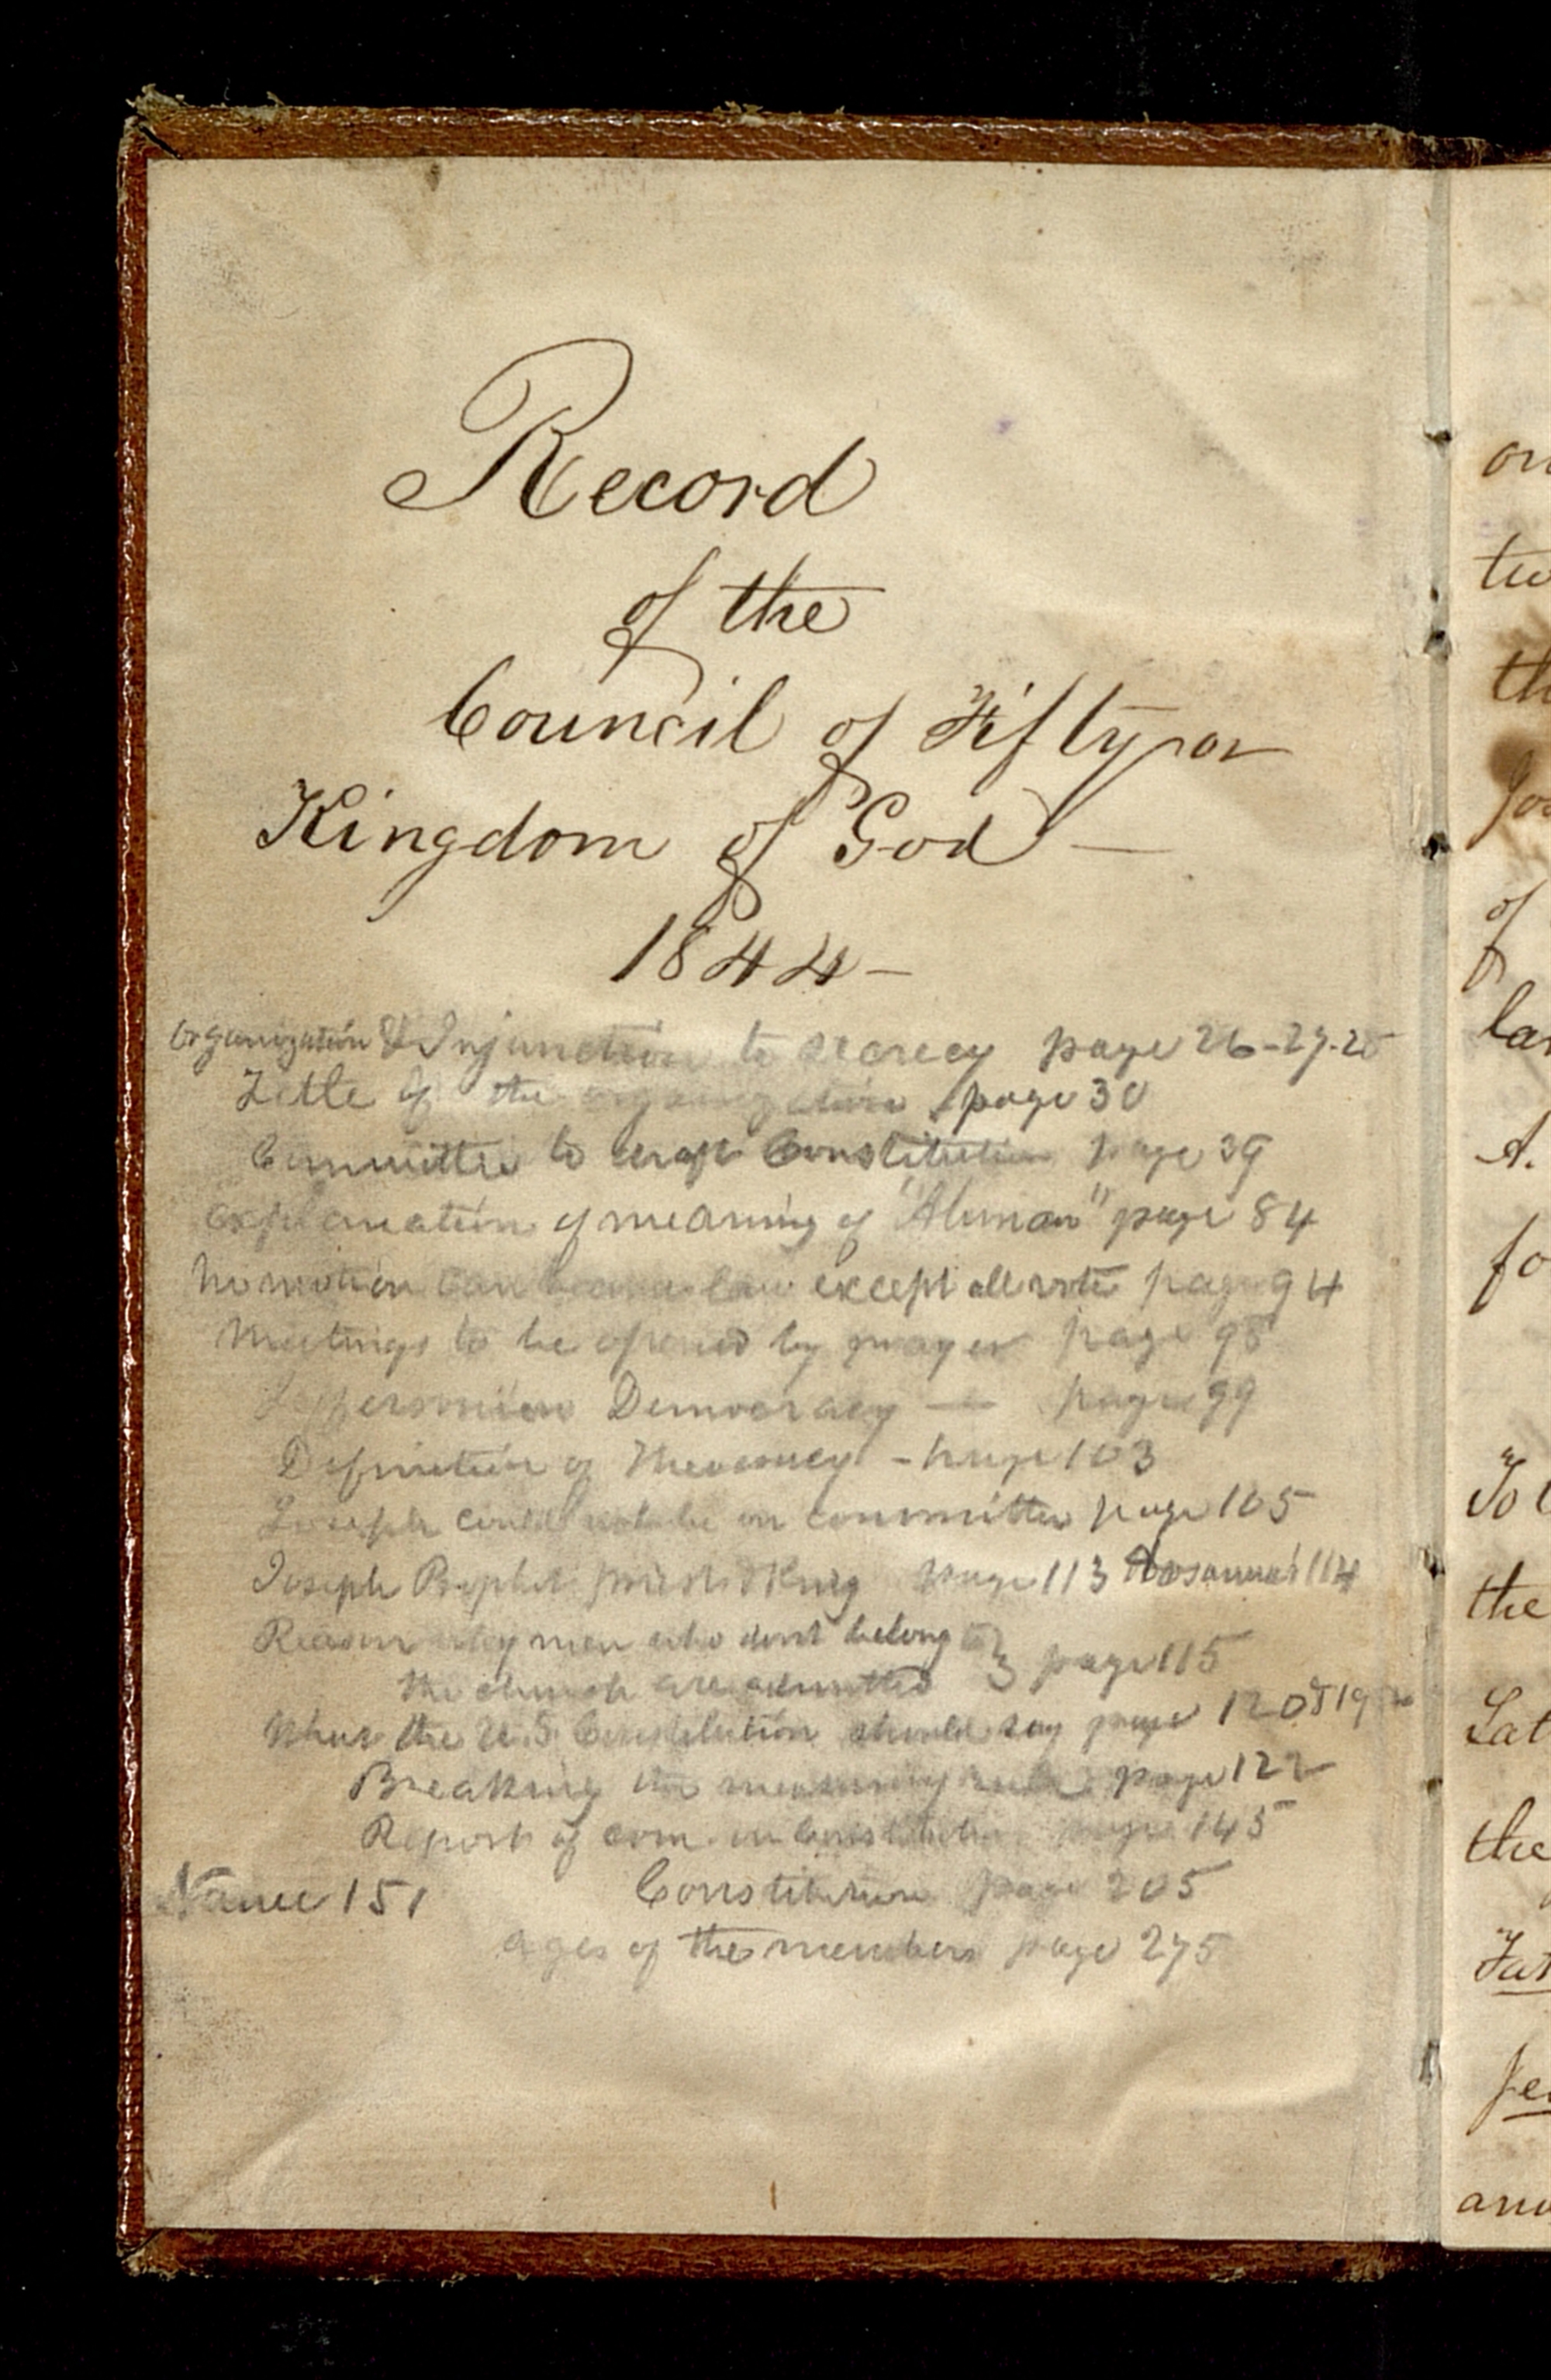 Record
of the
Council of Fifty or
Kingdom of God —
1844 —
Organization & Injunction to secrecy page 26-27-28
Title of the organization page 30
Committee to draft Constitution page 39
Explanation of meaning of "Ahman" page 84
No motion can become law except all vote page 94
Meetings to be opened by prayer page 98
Jeffersonian Democracy — page 99
Definition of Theocracy - page 103
Joseph could not be on committee page 105
Joseph Prophet priest & King page 113 Hosanna's 114
Reason why men who dont belong to
the church are admitted } page 115
What the U.S. Constitution should say page 120 & 19
Breaking the measuring rule page 122
Report of com. on Constitution page 145
Name 151 Constitution page 205
ages of the members page 275
on
two
th
Jos
of
lar
A.
fo
To
the
Lat
the
Fat
and